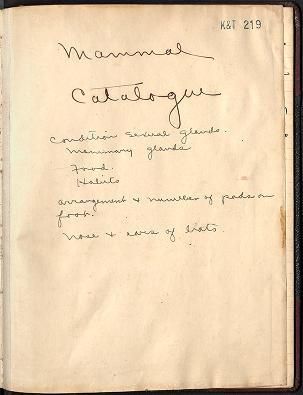 K&T 219
Mammal
Catalogue
Condition Sexual glands.
Mammary glands
Food.
Habits
arrangement & number of pads on
foot.
Nose & ears of bats.